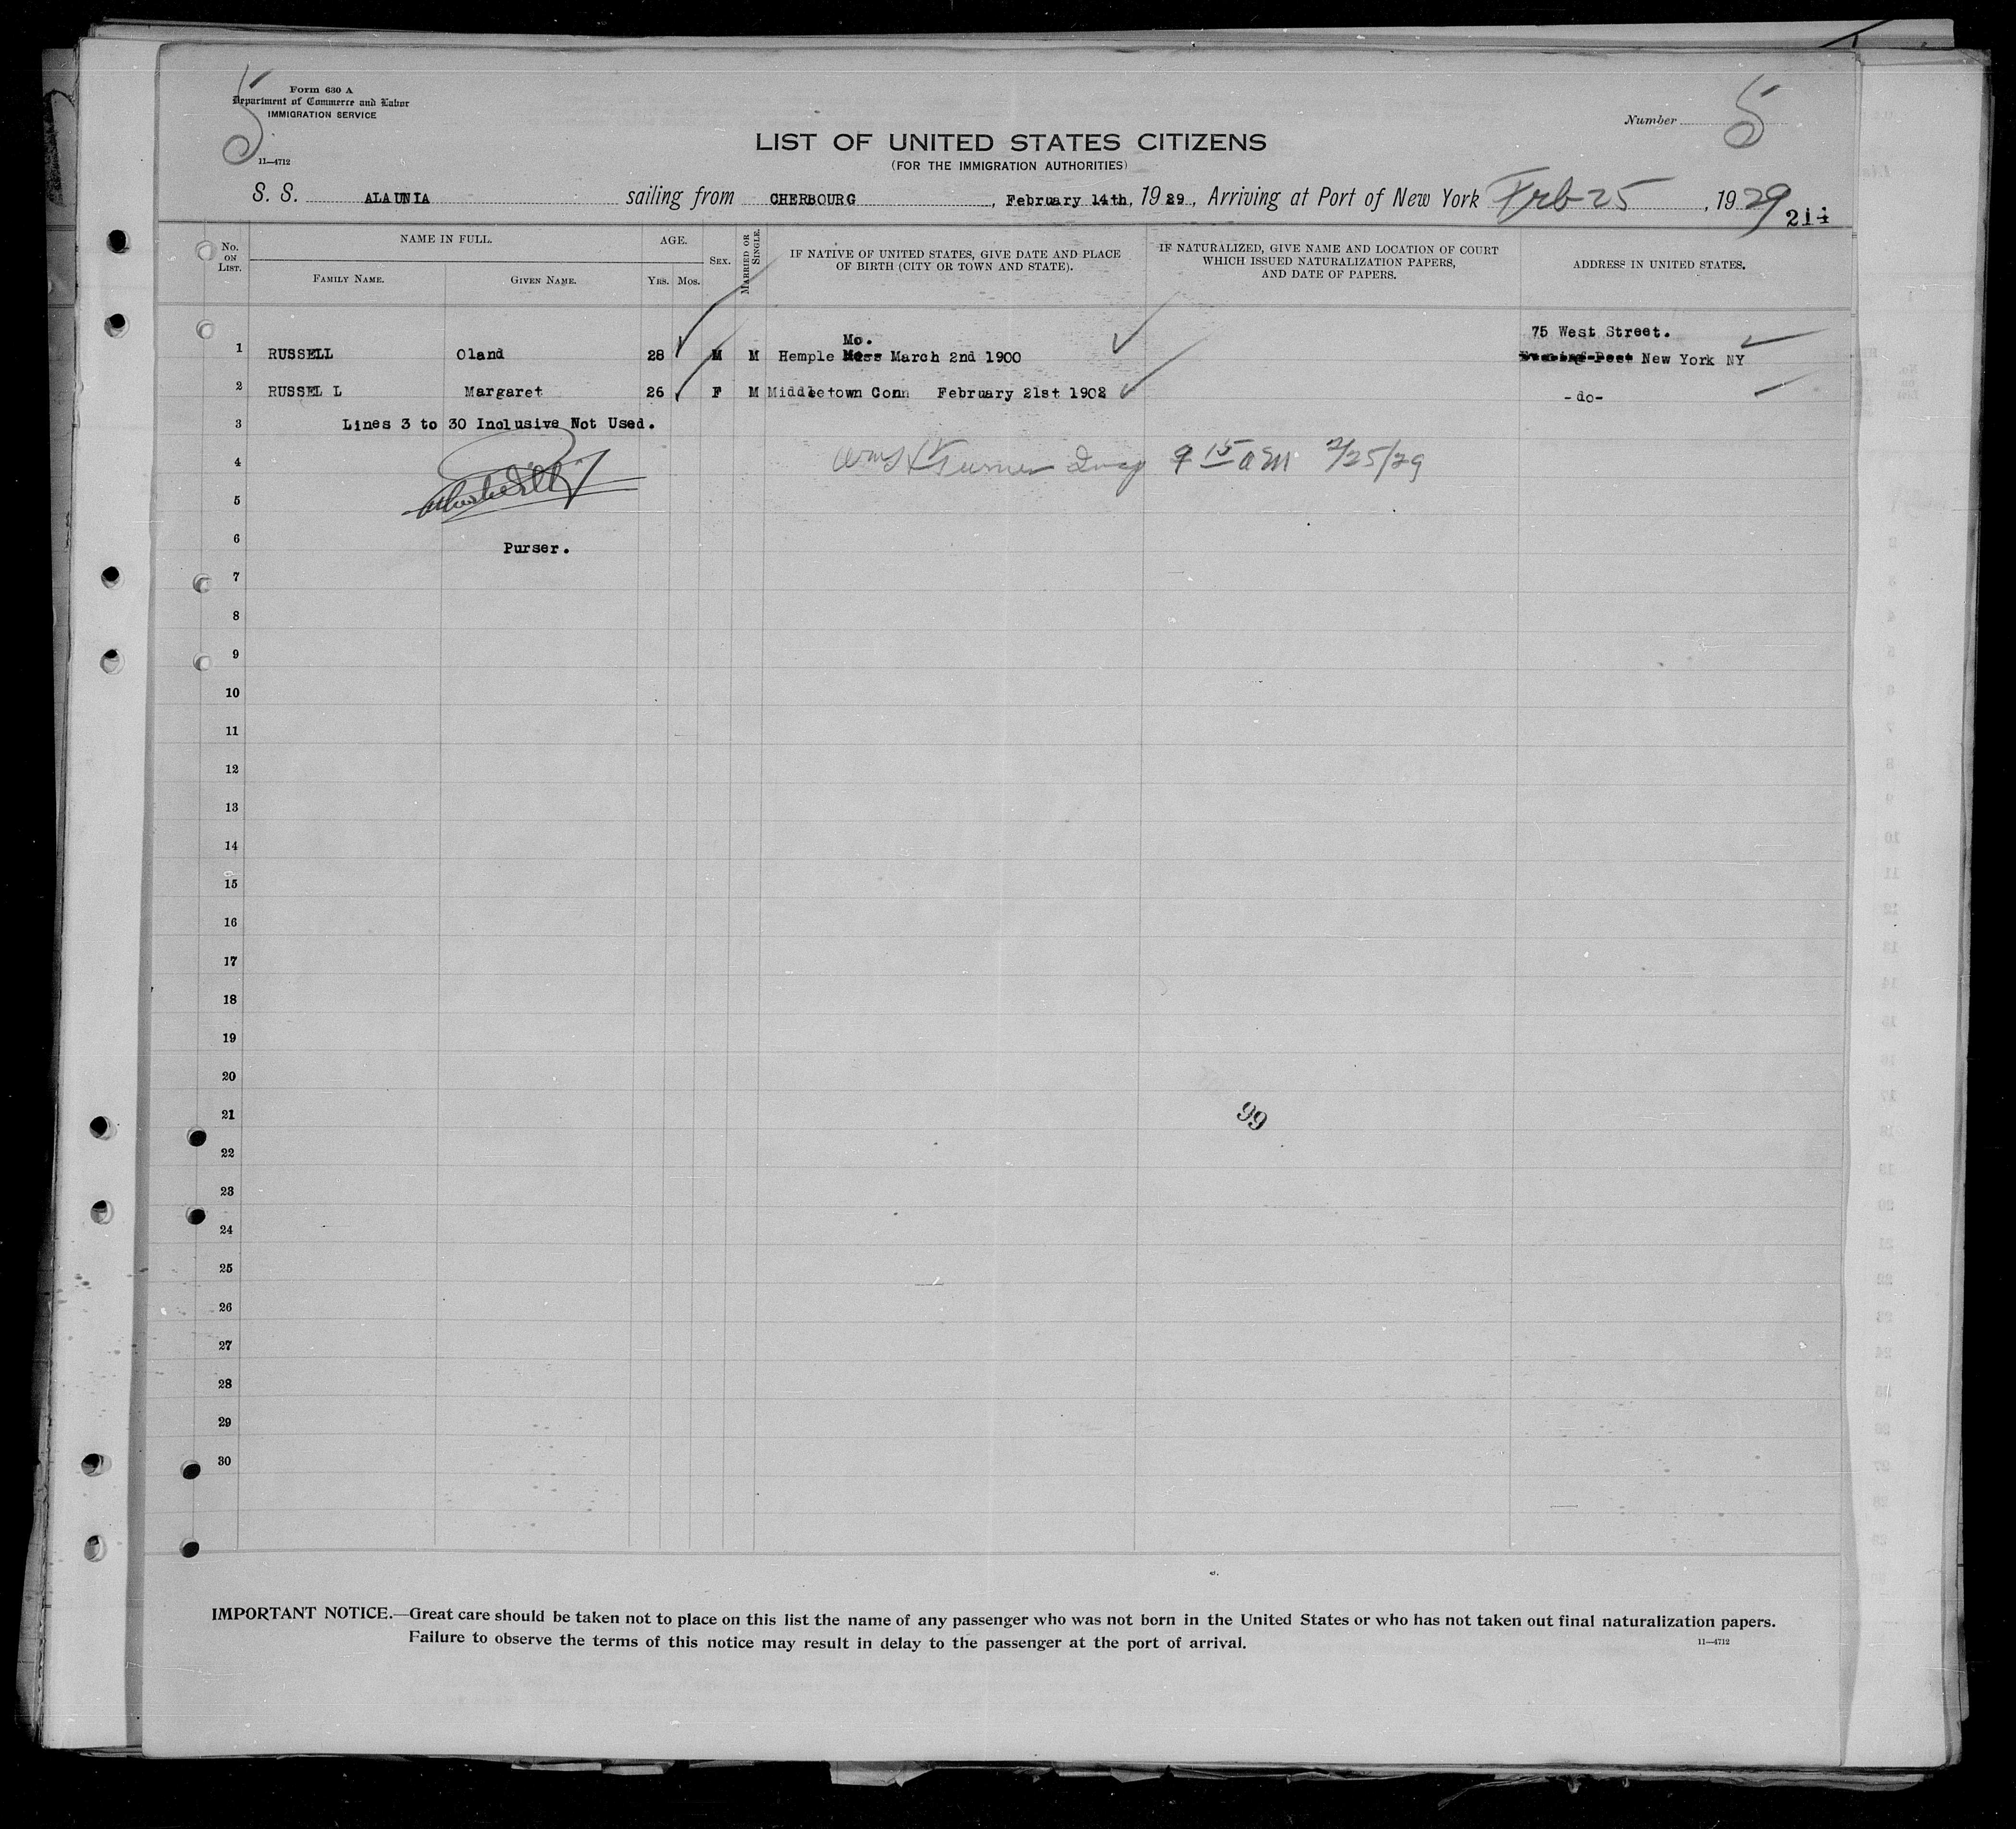 5
Form 630 A
Department of Commerce and Labor
IMMIGRATION SERVICE
11—4712
Number 5
LIST OF UNITED STATES CITIZENS
(FOR THE IMMIGRATION AUTHORITIES)
S. S. ALAUNIA sailing from CHERBOURG, February 14th, 1929, Arriving at Port of New York Feb 25, 1929
214
No. ON LIST.
NAME IN FULL.
FAMILY NAME.
GIVEN NAME.
AGE.
YRS. MOS.
SEX.
MARRIED OR SINGLE.
IF NATIVE OF UNITED STATES, GIVE DATE AND PLACE
OF BIRTH (CITY OR TOWN AND STATE).
IF NATURALIZED, GIVE NAME AND LOCATION OF COURT
WHICH ISSUED NATURALIZATION PAPERS,
AND DATE OF PAPERS.
ADDRESS IN UNITED STATES.
Mo. 75 West Street.
1 RUSSELL Oland 28 M M Hemple March 2nd 1900 New York NY
2 RUSSEL L Margaret 26 F M Middletown Conn February 21st 1902 -do-
3 Lines 3 to 30 Inclusive Not Used.
4 Turner Insp 9 15 AM 2/25/29
5
6 Purser.
7
8
9
10
11
12
13
14
15
16
17
18
19
20
21
99
22
23
24
25
26
27
28
29
30
IMPORTANT NOTICE.—Great care should be taken not to place on this list the name of any passenger who was not born in the United States or who has not taken out final naturalization papers.
Failure to observe the terms of this notice may result in delay to the passenger at the port of arrival.
11—4712